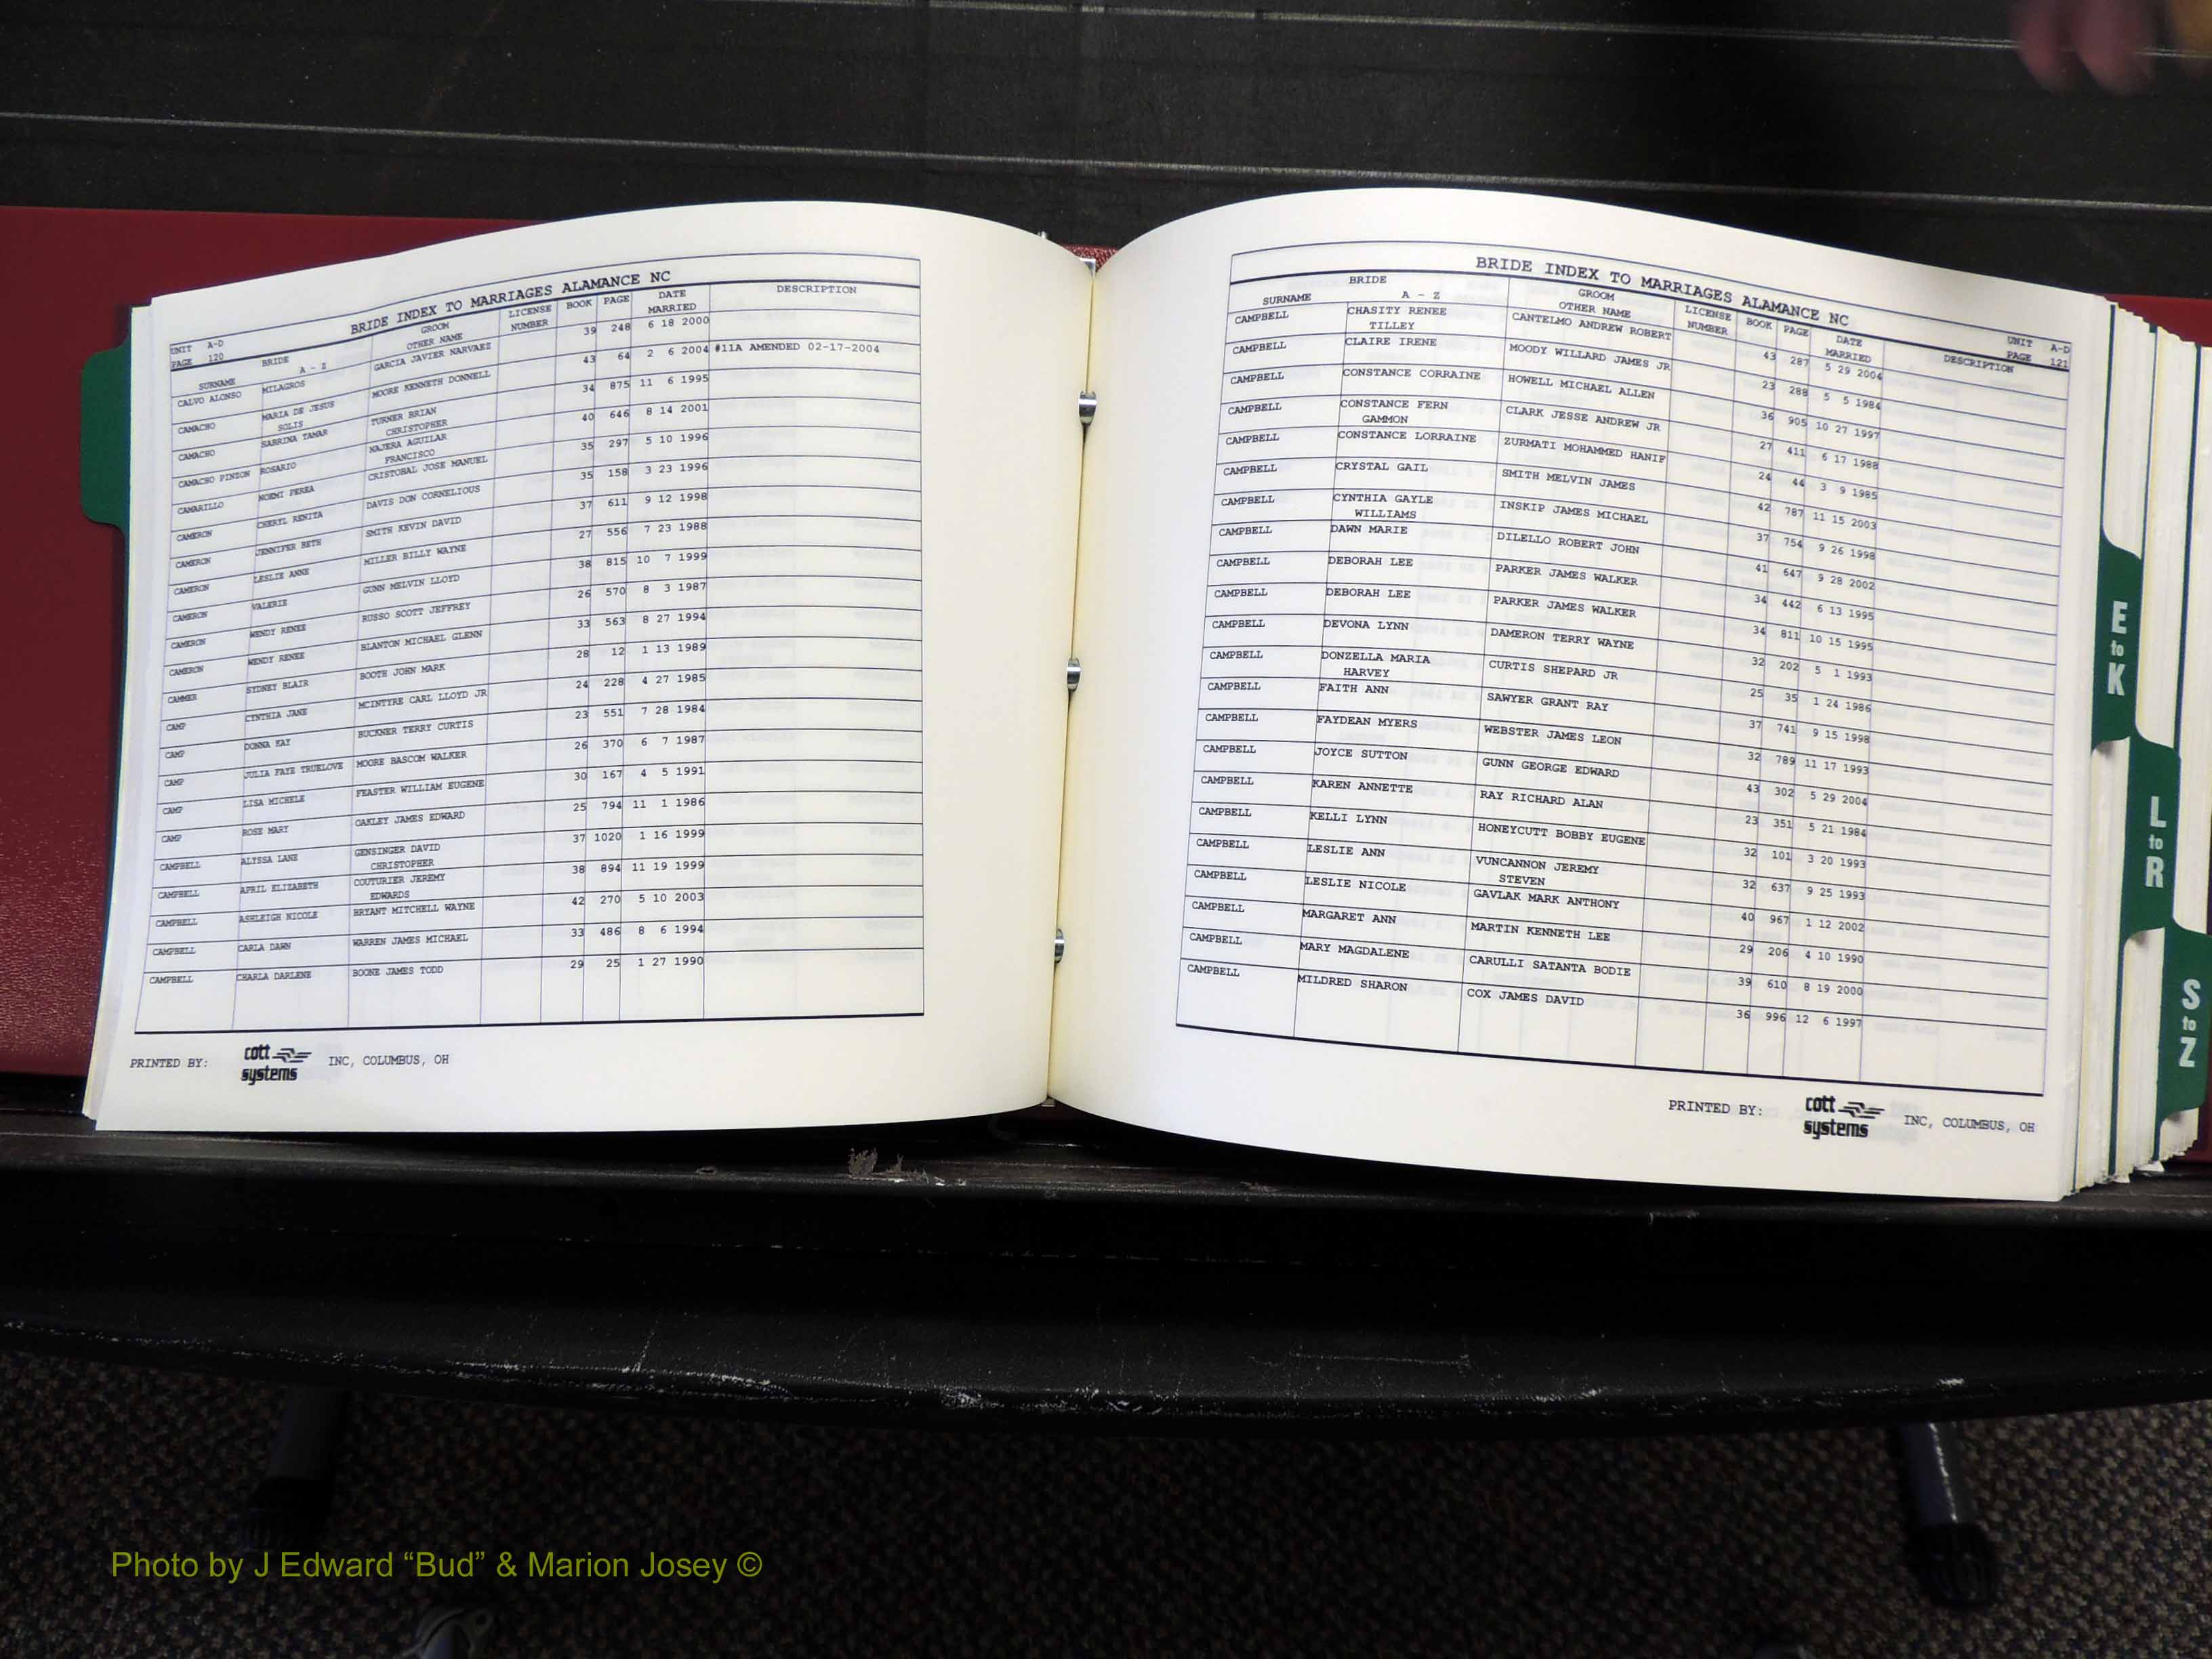 BRIDE INDEX TO MARRIAGES ALAMANCE NC
UNIT A-D
PAGE 120
SURNAME BRIDE A - Z GROOM OTHER NAME LICENSE NUMBER BOOK PAGE DATE MARRIED DESCRIPTION
CALVO ALONSO MILAGROS GARCIA JAVIER NARVAEZ 39 248 6 18 2000
CAMACHO MARIA DE JESUS SOLIS MOORE KENNETH DONNELL 43 64 2 6 2004 #11A AMENDED 02-17-2004
CAMACHO SABRINA TAMAR TURNER BRIAN CHRISTOPHER 34 875 11 6 1995
CAMACHO PINZON ROSARIO NAJERA AGUILAR FRANCISCO 40 646 8 14 2001
CAMARILLO NOEMI PEREA CRISTOBAL JOSE MANUEL 35 297 5 10 1996
CAMERON CHERYL RENITA DAVIS DON CORNELIOUS 35 158 3 23 1996
CAMERON JENNIFER BETH SMITH KEVIN DAVID 37 611 9 12 1998
CAMERON LESLIE ANNE MILLER BILLY WAYNE 27 556 7 23 1988
CAMERON VALERIE GUNN MELVIN LLOYD 38 815 10 7 1999
CAMERON WENDY RENEE RUSSO SCOTT JEFFREY 26 570 8 3 1987
CAMERON WENDY RENEE BLANTON MICHAEL GLENN 33 563 8 27 1994
CAMMER SYDNEY BLAIR BOOTH JOHN MARK 28 12 1 13 1989
CAMP CYNTHIA JANE MCINTYRE CARL LLOYD JR 24 228 4 27 1985
CAMP DONNA KAY BUCKNER TERRY CURTIS 23 551 7 28 1984
CAMP JULIA FAYE TRUELOVE MOORE BASCOM WALKER 26 370 6 7 1987
CAMP LISA MICHELE FEASTER WILLIAM EUGENE 30 167 4 5 1991
CAMP ROSE MARY OAKLEY JAMES EDWARD 25 794 11 1 1986
CAMPBELL ALYSSA LANE GENSINGER DAVID CHRISTOPHER 37 1020 1 16 1999
CAMPBELL APRIL ELIZABETH COUTURIER JEREMY EDWARDS 38 894 11 19 1999
CAMPBELL ASHLEIGH NICOLE BRYANT MITCHELL WAYNE 42 270 5 10 2003
CAMPBELL CARLA DAWN WARREN JAMES MICHAEL 33 486 8 6 1994
CAMPBELL CHARLA DARLENE BOONE JAMES TODD 29 25 1 27 1990
PRINTED BY: cott systems INC, COLUMBUS, OH
BRIDE INDEX TO MARRIAGES ALAMANCE NC
UNIT A-D
PAGE 121
SURNAME BRIDE A - Z GROOM OTHER NAME LICENSE NUMBER BOOK PAGE DATE MARRIED DESCRIPTION
CAMPBELL CHASITY RENEE TILLEY CANTELMO ANDREW ROBERT 43 287 5 29 2004
CAMPBELL CLAIRE IRENE MOODY WILLARD JAMES JR 23 288 5 5 1984
CAMPBELL CONSTANCE CORRAINE HOWELL MICHAEL ALLEN 36 905 10 27 1997
CAMPBELL CONSTANCE FERN GAMMON CLARK JESSE ANDREW JR 27 411 6 17 1988
CAMPBELL CONSTANCE LORRAINE ZURMATI MOHAMMED HANIF 24 44 3 9 1985
CAMPBELL CRYSTAL GAIL SMITH MELVIN JAMES 42 787 11 15 2003
CAMPBELL CYNTHIA GAYLE WILLIAMS INSKIP JAMES MICHAEL 37 754 9 26 1998
CAMPBELL DAWN MARIE DILELLO ROBERT JOHN 41 647 9 28 2002
CAMPBELL DEBORAH LEE PARKER JAMES WALKER 34 442 6 13 1995
CAMPBELL DEBORAH LEE PARKER JAMES WALKER 34 811 10 15 1995
CAMPBELL DEVONA LYNN DAMERON TERRY WAYNE 32 202 5 1 1993
CAMPBELL DONZELLA MARIA HARVEY CURTIS SHEPARD JR 25 35 1 24 1986
CAMPBELL FAITH ANN SAWYER GRANT RAY 37 741 9 15 1998
CAMPBELL FAYDEAN MYERS WEBSTER JAMES LEON 32 789 11 17 1993
CAMPBELL JOYCE SUTTON GUNN GEORGE EDWARD 43 302 5 29 2004
CAMPBELL KAREN ANNETTE RAY RICHARD ALAN 23 351 5 21 1984
CAMPBELL KELLI LYNN HONEYCUTT BOBBY EUGENE 32 101 3 20 1993
CAMPBELL LESLIE ANN VUNCANNON JEREMY STEVEN 32 637 9 25 1993
CAMPBELL LESLIE NICOLE GAVLAK MARK ANTHONY 40 967 1 12 2002
CAMPBELL MARGARET ANN MARTIN KENNETH LEE 29 206 4 10 1990
CAMPBELL MARY MAGDALENE CARULLI SATANTA BODIE 39 610 8 19 2000
CAMPBELL MILDRED SHARON COX JAMES DAVID 36 996 12 6 1997
PRINTED BY: cott systems INC, COLUMBUS, OH
E to K
L to R
S to Z
Photo by J Edward “Bud” & Marion Josey ©